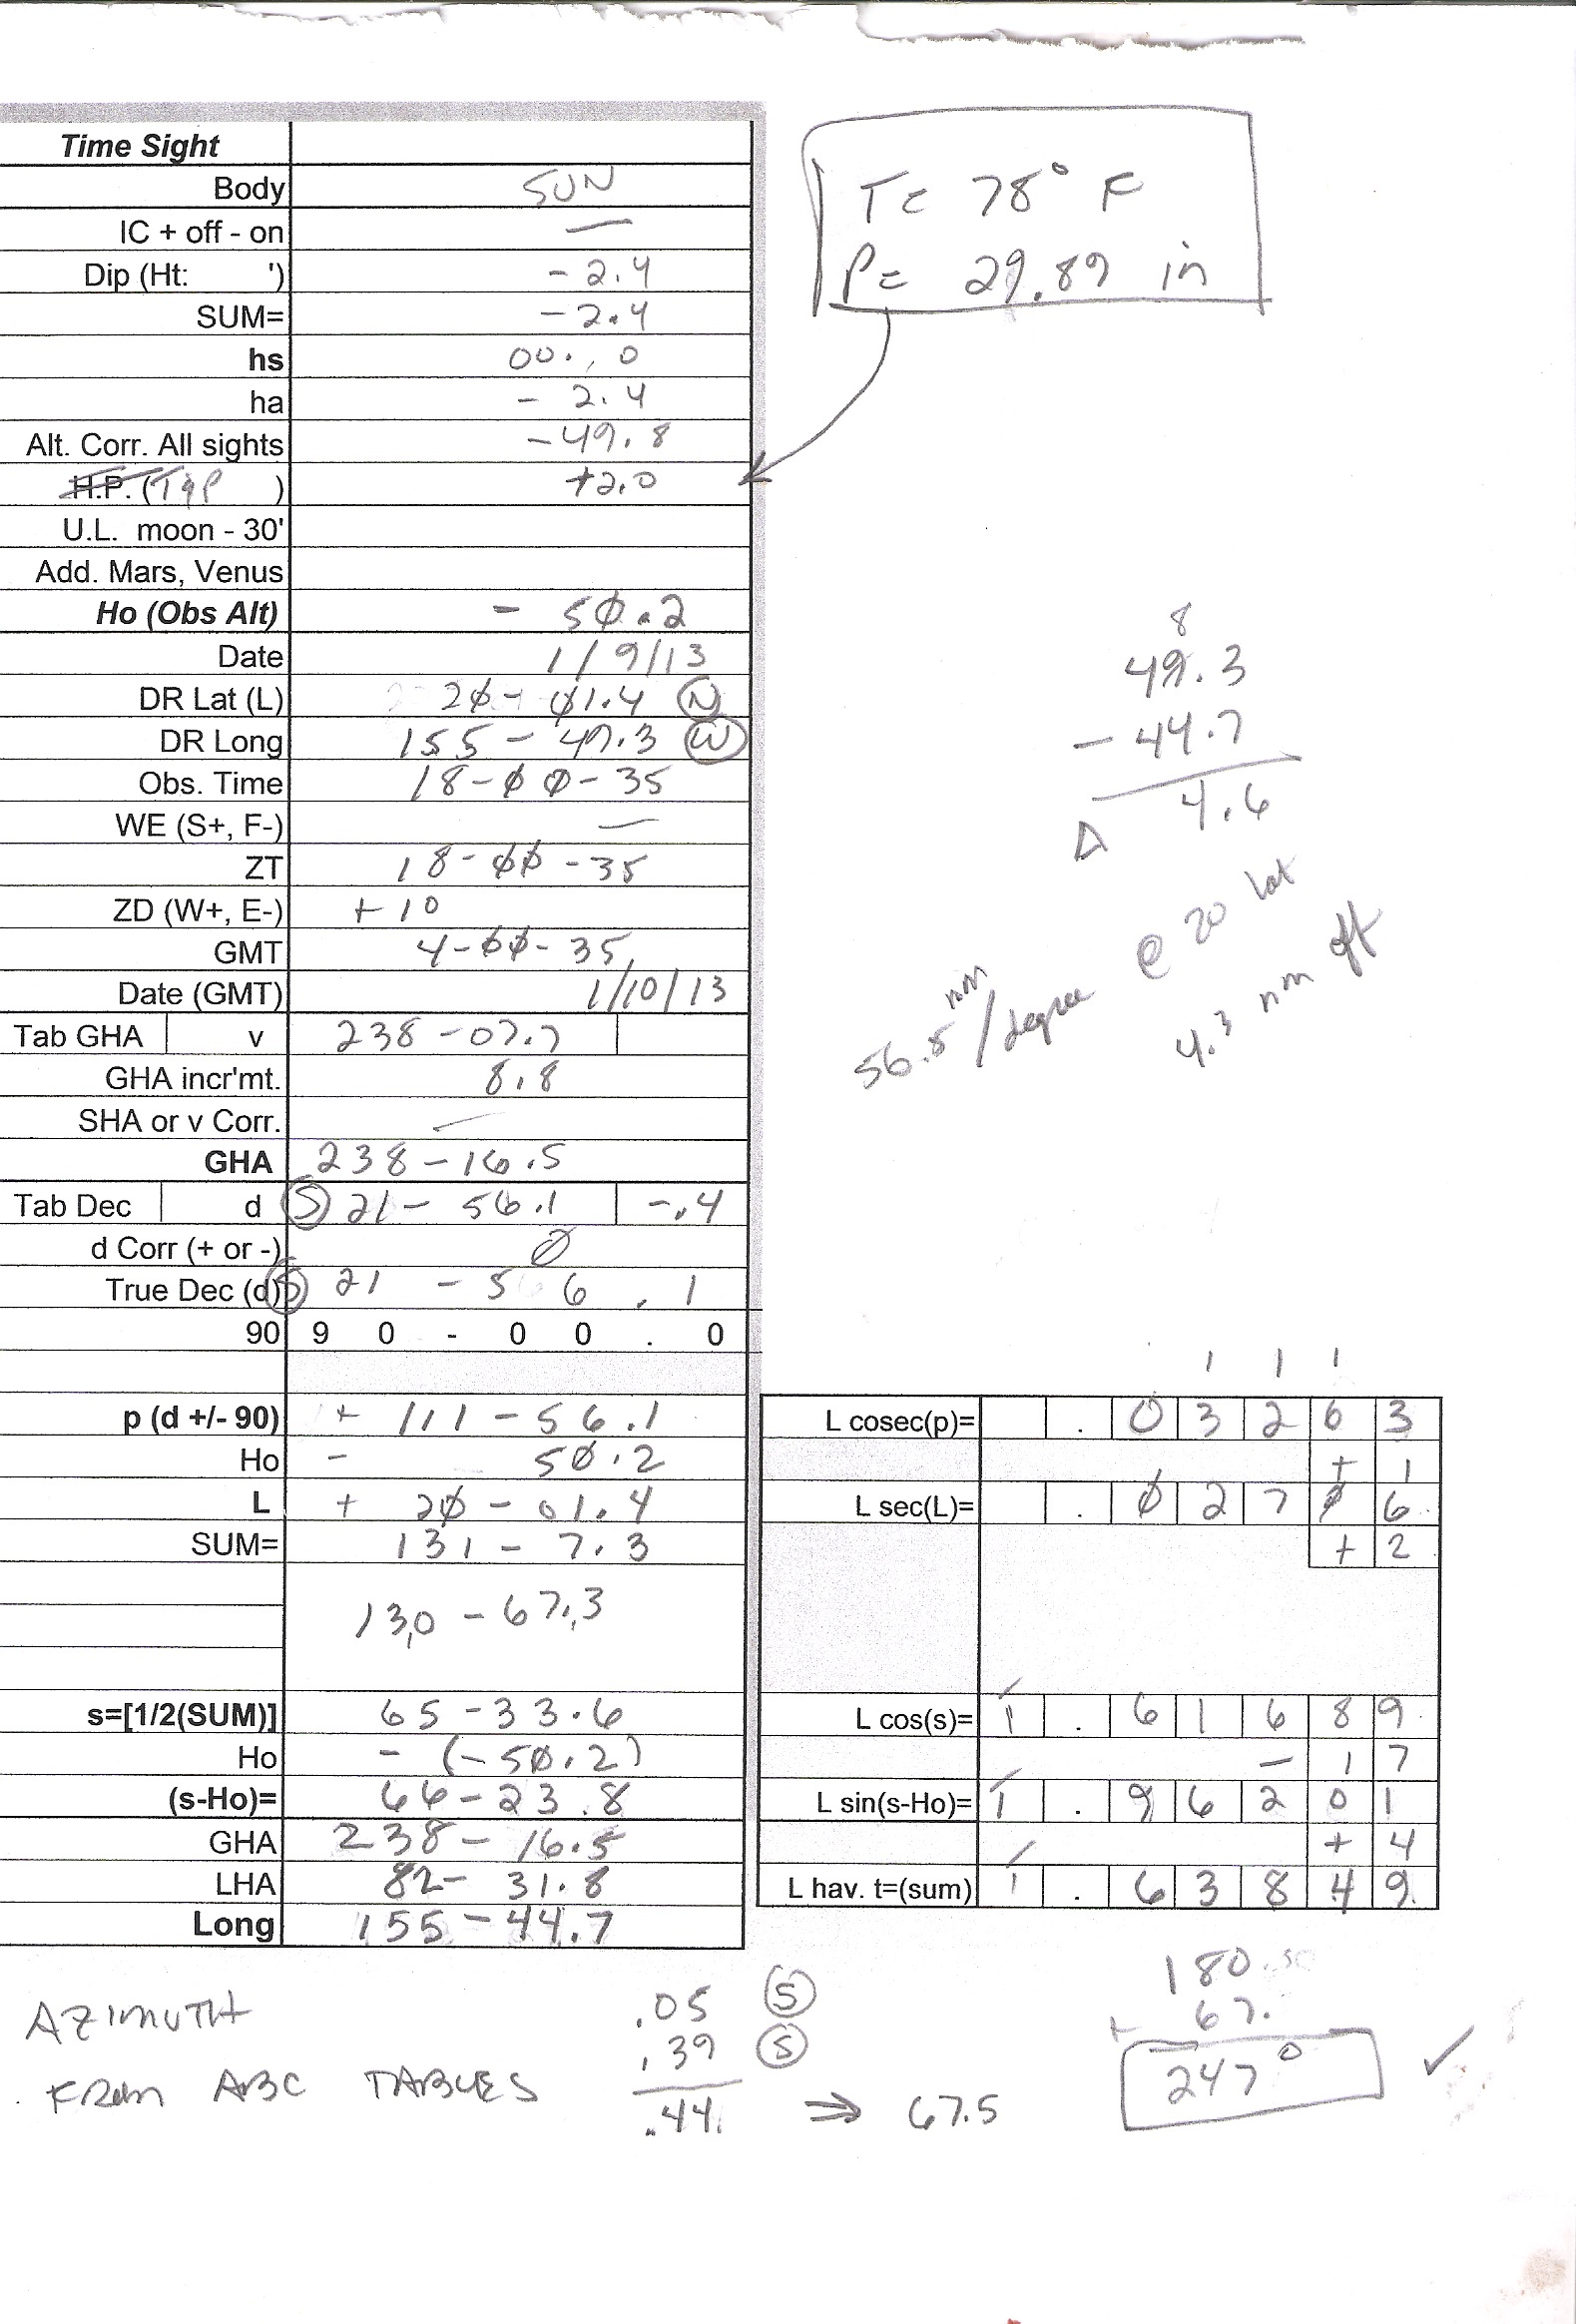 Time Sight
Body SUN
IC + off - on —
Dip (Ht: ') - 2.4
SUM= - 2.4
hs 00., 0
ha - 2.4
Alt. Corr. All sights -49.8
H.P. (T&P ) +2.0
U.L. moon - 30'
Add. Mars, Venus
Ho (Obs Alt) - 50.2
Date 1/9/13
DR Lat (L) 20- 01.4 N
DR Long 155 - 49.3 W
Obs. Time 18-00-35
WE (S+, F-) —
ZT 18-00-35
ZD (W+, E-) +10
GMT 4-00-35
Date (GMT) 1/10/13
Tab GHA v 238-07.7
GHA incr'mt. 8.8
SHA or v Corr. —
GHA 238-16.5
Tab Dec d S 21- 56.1 -.4
d Corr (+ or -) 0
True Dec (d) S 21 - 56 . 1
90 9 0 - 0 0 . 0
p (d +/- 90) + 111-56.1
Ho - 50.2
L + 20-01.4
SUM= 131- 7.3
130 - 67.3
s=[1/2(SUM)] 65-33.6
Ho - (-50.2)
(s-Ho)= 66-23.8
GHA 238- 16.5
LHA 82- 31.8
Long 155-44.7
T= 78° F
P= 29.89 in
8
49.3
- 44.7
Δ 4.6
56.5 nm/degree @ 20 lat
4.3 nm off
1 1 1
L cosec(p)= . 0 3 2 6 3
+ 1
L sec(L)= . 0 2 7 0 6
+ 2
L cos(s)= 1 . 6 1 6 8 9
- 1 7
L sin(s-Ho)= 1 . 9 6 2 0 1
+ 4
L hav. t=(sum) 1 . 6 3 8 4 9
AZIMUTH
FROM ABC TABLES
.05 S
.39 S
.44 ⇒ 67.5
180.
+ 67.
247° ✓